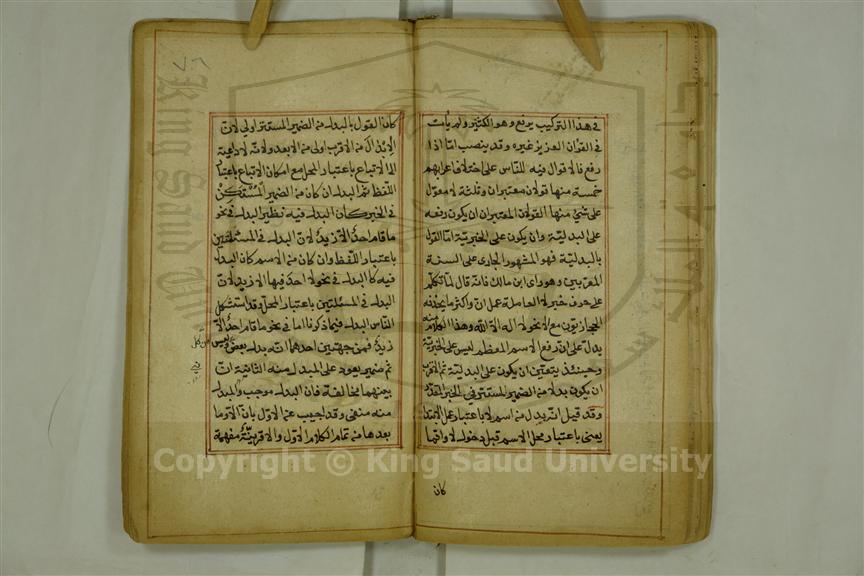 في هذا التركيب يرفع وهو الكثير ولم يأت
في القرآن العزيز غيره وقد ينصب اما اذا
رفع فالاقوال فيه للناس على اختلاف اعرابهم
خمسة منها قولان معتبران وثلثة لا معول
على شئ منها القولان المعتبران ان يكون رفعه
على البدلية وان يكون على الخبرية اما القول
بالبدلية فهو المشهور الجارى على السنة
المعربين وهو راى ابن مالك فانه قال لما تكلم
على حذف خبر لا العاملة عمل ان واكثر ما يحذفه
الحجازيون مع الا نحو لا اله الا الله وهذا الكلام منه
يدل على ان رفع الاسم المعظم ليس على الخبرية
وحينئذ يتعين ان يكون على البدلية ثم الاقرب
ان يكون بدلا من الضمير المستتر في الخبر المقدر
وقد قيل انه بدل من اسم لا باعتبار عمل الابتدا
يعنى باعتبار محل الاسم قبل دخول لا وانما
كان
٧٦
كان القول بالبدل من الضمير المستتر اولى لان
الابدال من الاقرب اولى من الابعد ولانه لا داعية
الى الاتباع باعتبار المحل مع امكان الاتباع باعتبار
اللفظ ثم البدل ان كان من الضمير المستكن
في الخبر كان البدل فيه نظير البدل في نحو
ما قام احد الا زيد لان البدل في المسئلتين
باعتبار اللفظ وان كان من الاسم كان البدل
فيه كالبدل في نحو لا احد فيها الا زيد لان
البدل في المسئلتين باعتبار المحل وقد استشكل
الناس البدل فيما ذكرنا اما في نحو ما قام احد الا
زيد فمن جهتين احدهما انه بدل بعض وليس
ثم ضمير يعود على المبدل منه الثانية ان
بينهما مخالفة فان البدل موجب والمبدل
منه منفى وقد اجيب عن الاول بان الا وما
بعدها من تمام الكلام الاول والا قرينة مفهمة
Copyright © King Saud University